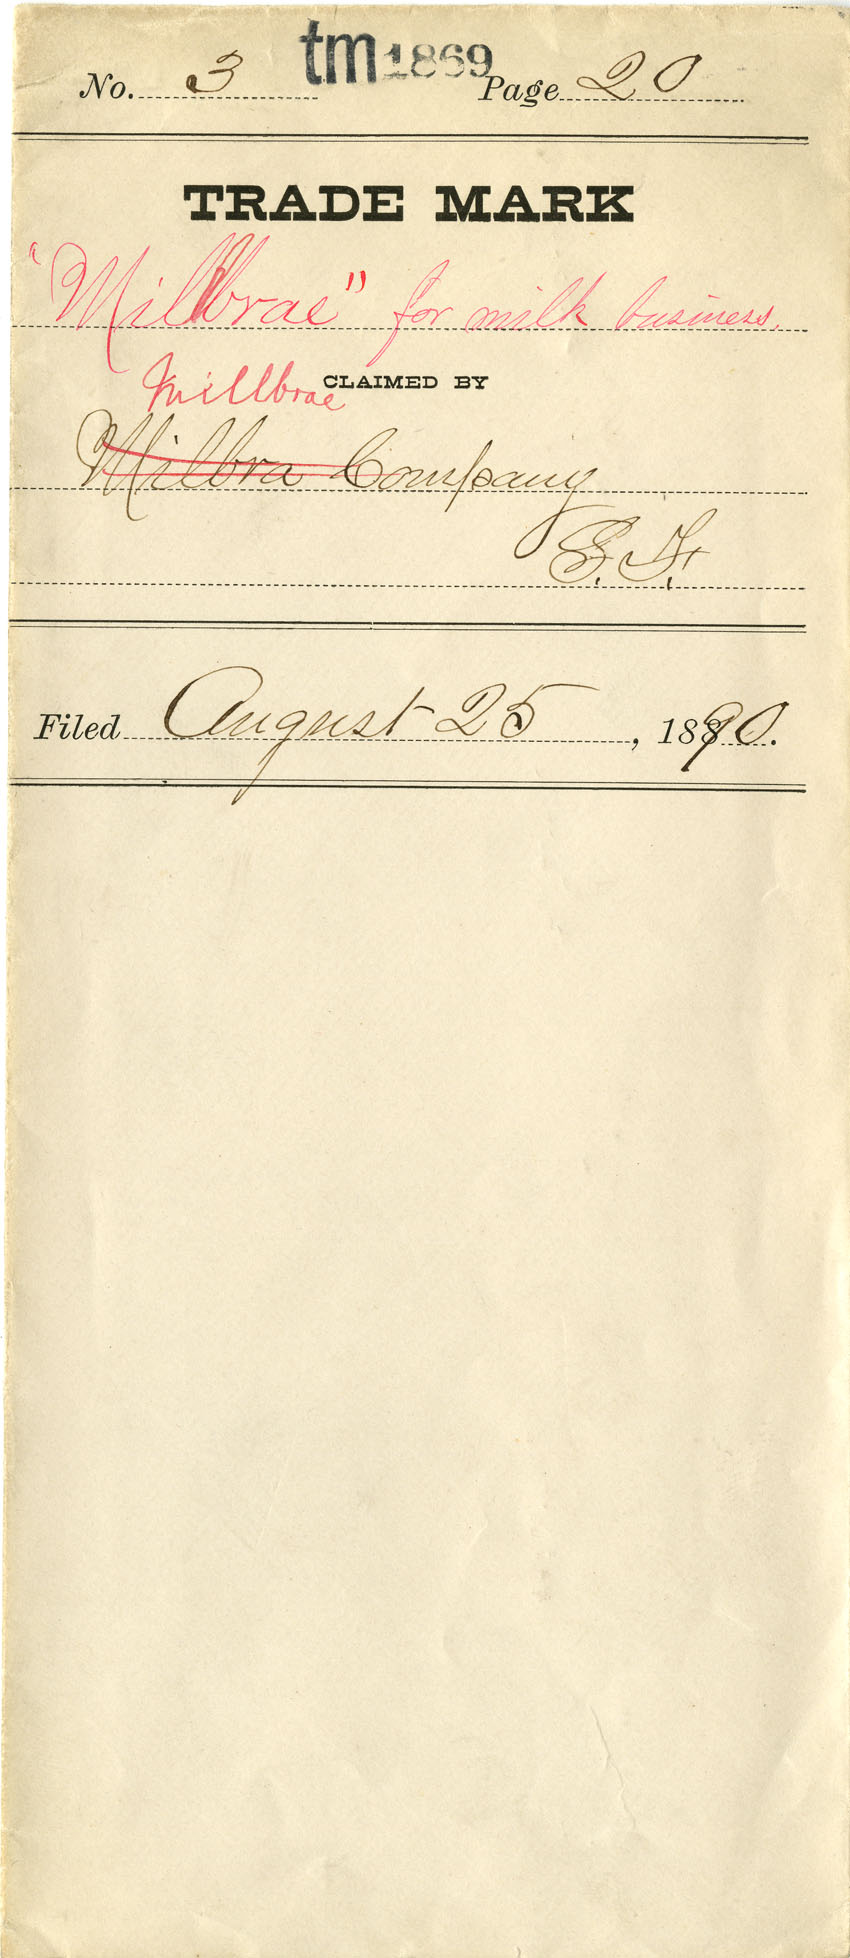 No. 3 tm 1869 Page 20
TRADE MARK
"Millbrae" for milk business.
CLAIMED BY
Millbrae
Milbra Company
S. F.
Filed August 25, 1890.